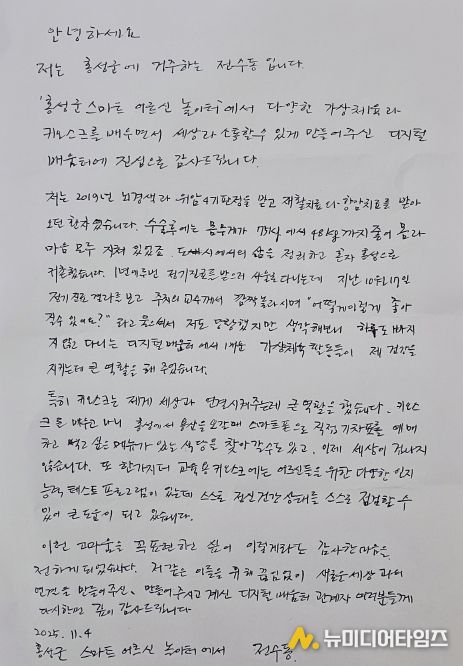 안녕하세요
저는 홍성군에 거주하는 전수동 입니다.
'홍성군 스마트 어르신 놀이터'에서 다양한 가상체육과
키오스크를 배우면서 세상과 소통할수 있게 만들어주신 디지털
배움터에 진심으로 감사드립니다.
저는 2019년 뇌경색과 위암4기판정을 받고 재활치료와 항암치료를 받아
오던 환자였습니다. 수술후에는 몸무게가 78kg에서 48kg까지 줄어 몸과
마음 모두 지쳐 있었죠. 도시에서의 삶을 정리하고 혼자 홍성으로
귀촌했습니다. 1년에 두번 정기진료를 받으러 서울로 다니는데 지난 10월17일
정기진료 결과를 보고 주치의 교수께서 깜짝놀라시며 "어떻게이렇게 좋아
질수 있어요?" 라고 물으셔서 저도 당황했지만 생각해보니 하루도 빠지
지 않고 다니는 디지털 배움터에서 배운 가상체육 활동들이 제 건강을
지키는데 큰 역할을 해 주었습니다.
특히 키오스크는 제게 세상과 연결시켜주는데 큰 역할을 했습니다. 키오스
크를 배우고 나니 홍성에서 용산을 오갈때 스마트폰으로 직접 기차표를 예매
하고 먹고 싶은 메뉴가 있는 식당을 찾아갈수도 있고, 이제 세상이 겁나지
않습니다. 또 한가지더 교육용키오스크에는 어르신들을 위한 다양한 인지
능력 테스트 프로그램이 있는데 스스로 정신건강상태를 스스로 점검할 수
있어 큰 도움이 되고 있습니다.
이런 고마움을 꼭 표현하고 싶어 이렇게라도 감사한마음을
전하게 되었습니다. 저같은 이들을 위해 끊임없이 새로운세상 과의
연결을 만들어주신, 만들어주시고 계신 디지털 배움터 관계자 여러분들께
다시한번 깊이 감사드립니다
2025. 11. 4
홍성군 스마트 어르신 놀이터에서 전수동.
뉴미디어타임즈